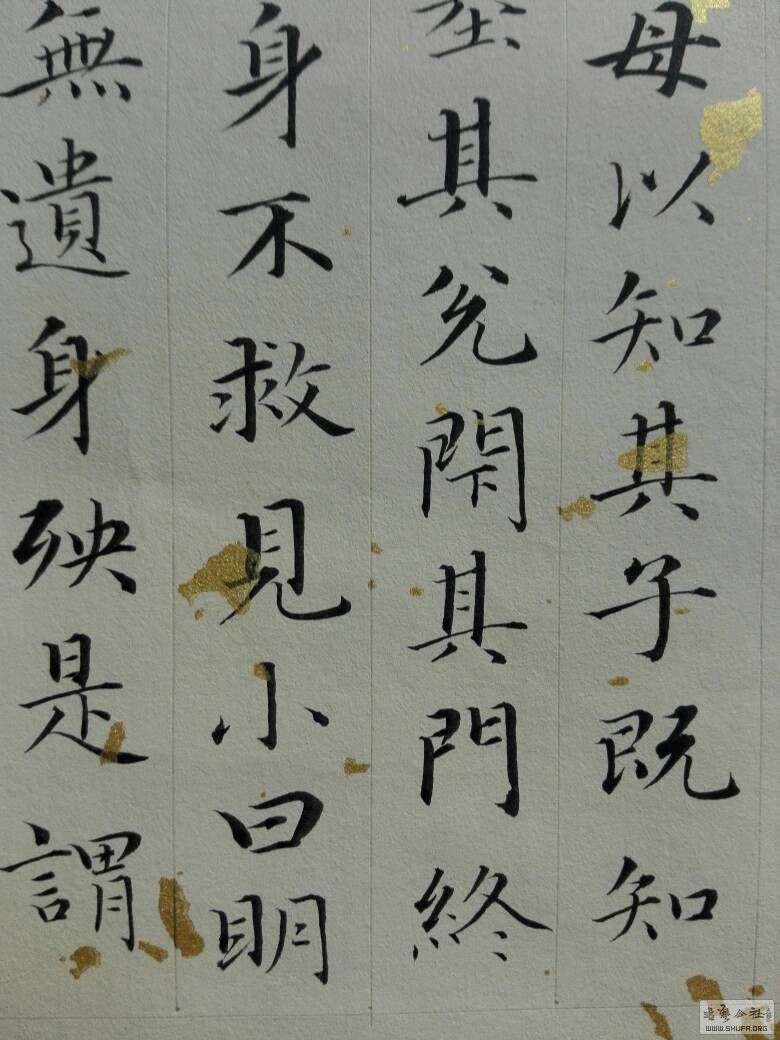 母以知其子既知
其兊閇其門終
身不救見小曰明
無遺身殃是謂
書藝公社
WWW.SHUFA.ORG